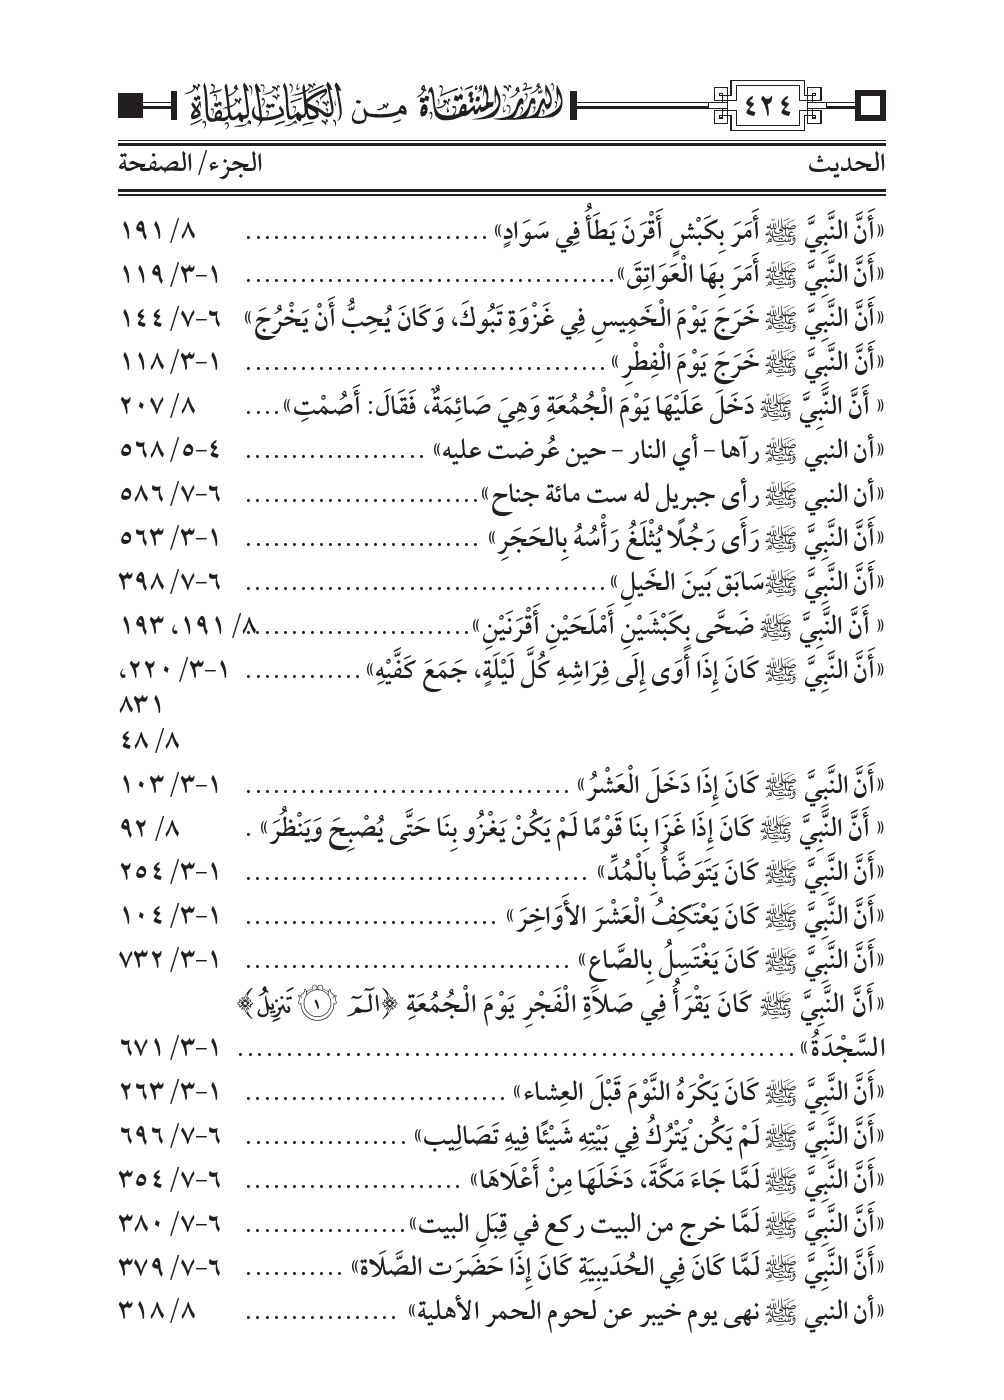 ٤٢٤ الدرر المنتقاة من الكلمات الملقاة
الحديث الجزء/ الصفحة
«أَنَّ النَّبِيَّ ﷺ أَمَرَ بِكَبْشٍ أَقْرَنَ يَطَأُ فِي سَوَادٍ» .......................... ٨/ ١٩١
«أَنَّ النَّبِيَّ ﷺ أَمَرَ بِهَا الْعَوَاتِقَ» ........................................ ١-٣/ ١١٩
«أَنَّ النَّبِيَّ ﷺ خَرَجَ يَوْمَ الْخَمِيسِ فِي غَزْوَةِ تَبُوكَ، وَكَانَ يُحِبُّ أَنْ يَخْرُجَ» ٦-٧/ ١٤٤
«أَنَّ النَّبِيَّ ﷺ خَرَجَ يَوْمَ الْفِطْرِ» ....................................... ١-٣/ ١١٨
« أَنَّ النَّبِيَّ ﷺ دَخَلَ عَلَيْهَا يَوْمَ الْجُمُعَةِ وَهِيَ صَائِمَةٌ، فَقَالَ: أَصُمْتِ» .... ٨/ ٢٠٧
«أن النبي ﷺ رآها – أي النار – حين عُرضت عليه» ................... ٤-٥/ ٥٦٨
«أن النبي ﷺ رأى جبريل له ست مائة جناح» ......................... ٦-٧/ ٥٨٦
«أَنَّ النَّبِيَّ ﷺ رَأَى رَجُلًا يُثْلَغُ رَأْسُهُ بِالحَجَرِ» ......................... ١-٣/ ٥٦٣
«أَنَّ النَّبِيَّ ﷺ سَابَق بَينَ الخَيلِ» ....................................... ٦-٧/ ٣٩٨
« أَنَّ النَّبِيَّ ﷺ ضَحَّى بِكَبْشَيْنِ أَمْلَحَيْنِ أَقْرَنَيْنِ» ........................ ٨/ ١٩١، ١٩٣
«أَنَّ النَّبِيَّ ﷺ كَانَ إِذَا أَوَى إِلَى فِرَاشِهِ كُلَّ لَيْلَةٍ، جَمَعَ كَفَّيْهِ» ............. ١-٣/ ٢٢٠،
٨٣١
٨/ ٤٨
«أَنَّ النَّبِيَّ ﷺ كَانَ إِذَا دَخَلَ الْعَشْرُ» ................................... ١-٣/ ١٠٣
« أَنَّ النَّبِيَّ ﷺ كَانَ إِذَا غَزَا بِنَا قَوْمًا لَمْ يَكُنْ يَغْزُو بِنَا حَتَّى يُصْبِحَ وَيَنْظُرَ» . ٨/ ٩٢
«أَنَّ النَّبِيَّ ﷺ كَانَ يَتَوَضَّأُ بِالْمُدِّ» ..................................... ١-٣/ ٢٥٤
«أَنَّ النَّبِيَّ ﷺ كَانَ يَعْتَكِفُ الْعَشْرَ الأَوَاخِرَ» ........................... ١-٣/ ١٠٤
«أَنَّ النَّبِيَّ ﷺ كَانَ يَغْتَسِلُ بِالصَّاعِ» ................................... ١-٣/ ٧٣٢
«أَنَّ النَّبِيَّ ﷺ كَانَ يَقْرَأُ فِي صَلاَةِ الْفَجْرِ يَوْمَ الْجُمُعَةِ ﴿الٓمٓ ١ تَنزِيلُ﴾
السَّجْدَةُ» ............................................................ ١-٣/ ٦٧١
«أَنَّ النَّبِيَّ ﷺ كَانَ يَكْرَهُ النَّوْمَ قَبْلَ العِشاء» ............................ ١-٣/ ٢٦٣
«أَنَّ النَّبِيَّ ﷺ لَمْ يَكُنْ يَتْرُكُ فِي بَيْتِهِ شَيْئًا فِيهِ تَصَالِيب» ................. ٦-٧/ ٦٩٦
«أَنَّ النَّبِيَّ ﷺ لَمَّا جَاءَ مَكَّةَ، دَخَلَهَا مِنْ أَعْلَاهَا» ....................... ٦-٧/ ٣٥٤
«أَنَّ النَّبِيَّ ﷺ لَمَّا خرج من البيت ركع في قِبَلِ البيت» ................. ٦-٧/ ٣٨٠
«أَنَّ النَّبِيَّ ﷺ لَمَّا كَانَ فِي الحُدَيبِيَةِ كَانَ إِذَا حَضَرَت الصَّلَاة» ........... ٦-٧/ ٣٧٩
«أن النبي ﷺ نهى يوم خيبر عن لحوم الحمر الأهلية» ................. ٨/ ٣١٨